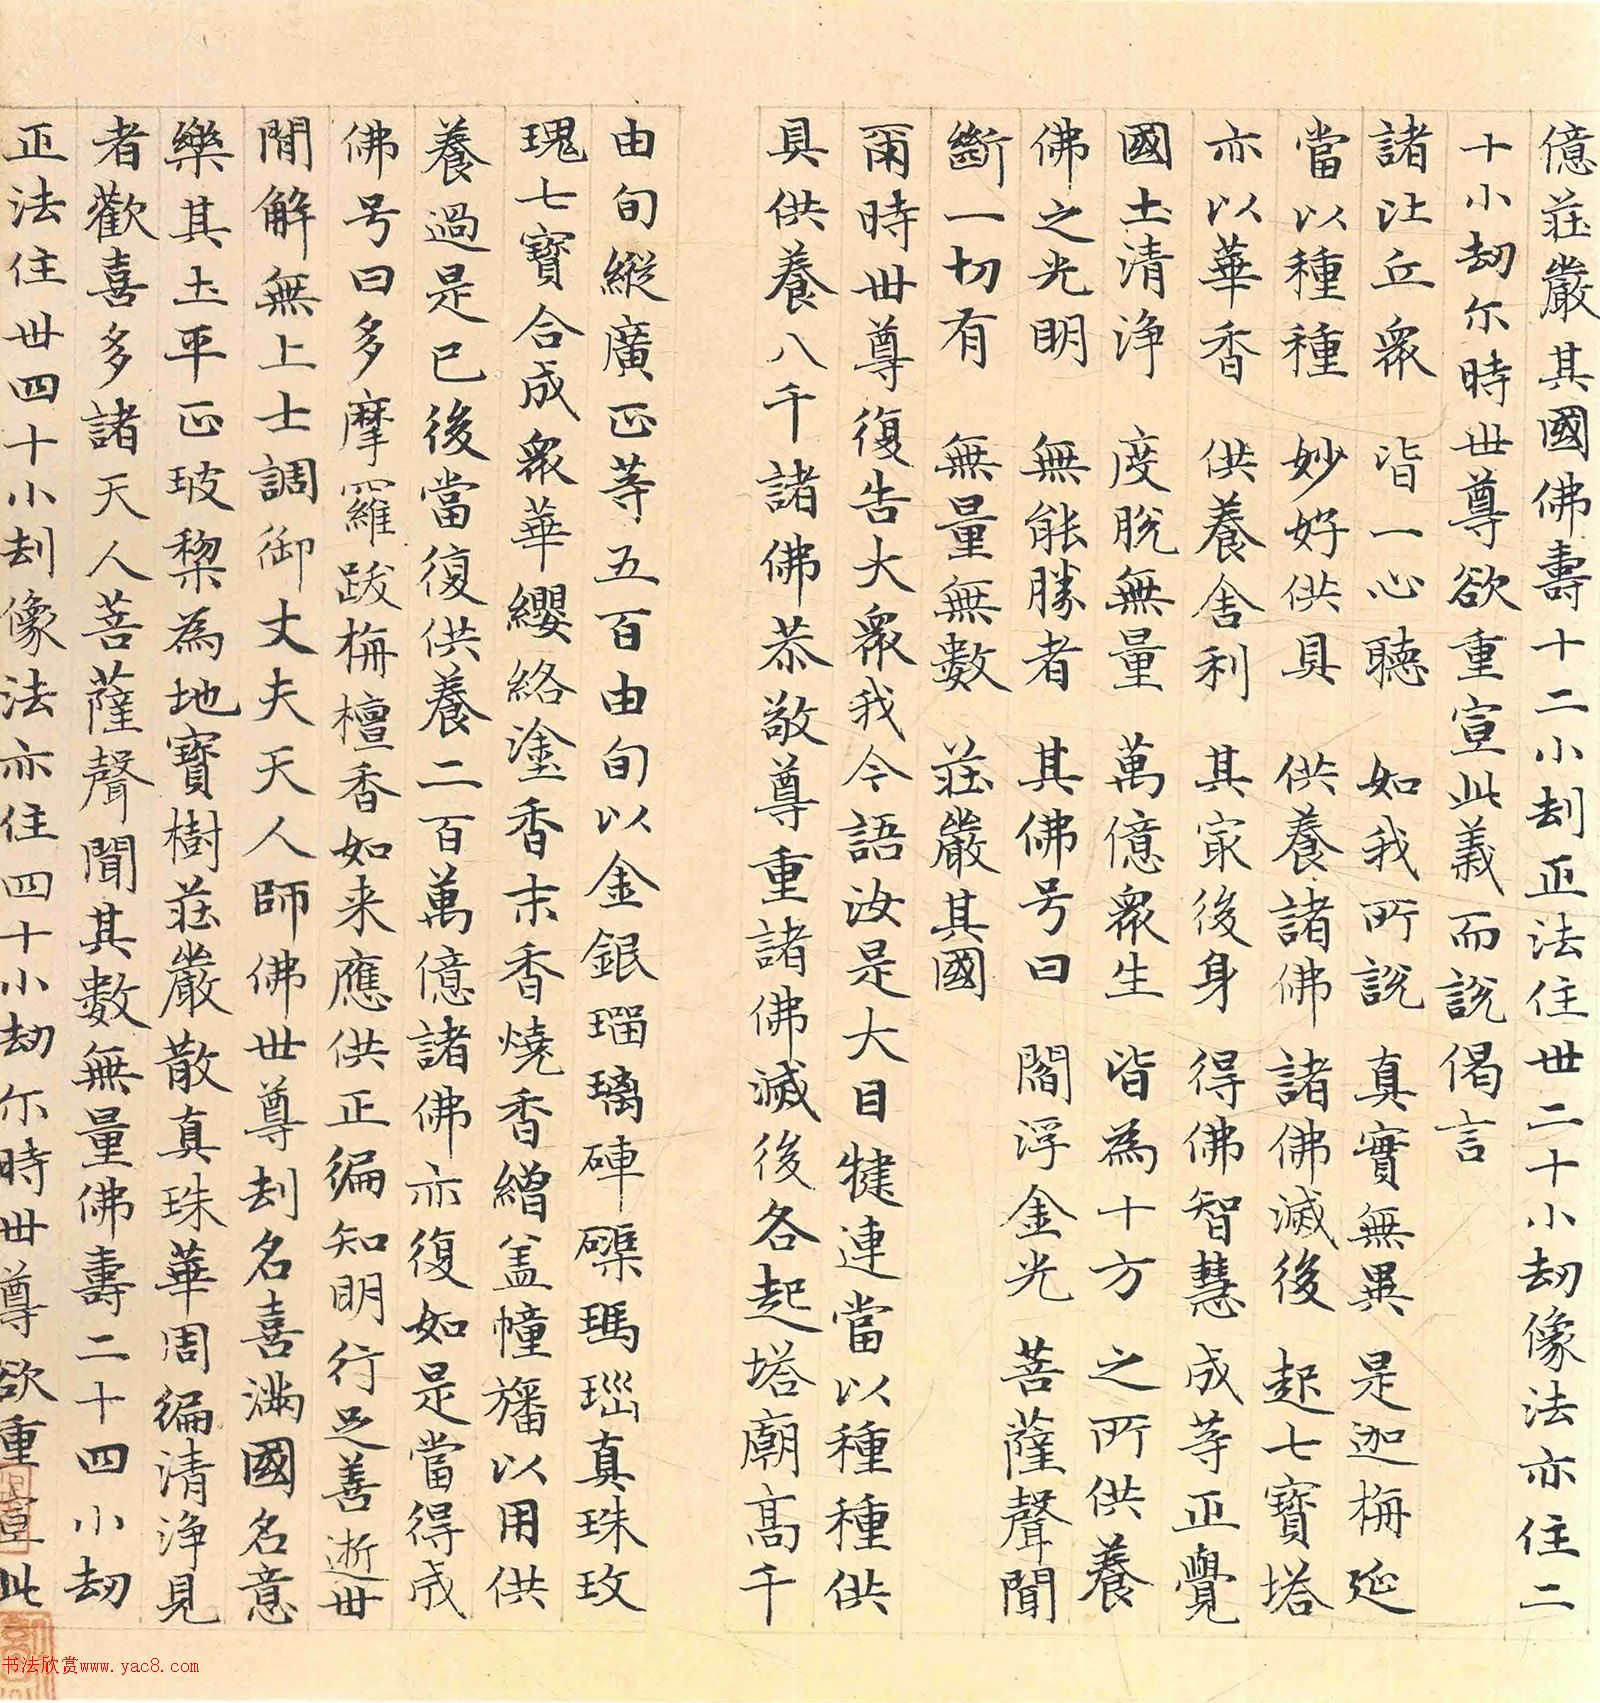 億莊嚴其國佛壽十二小刼正法住世二十小刼像法亦住二
十小刼尔時世尊欲重宣此義而說偈言
諸比丘衆　皆一心聽　如我所說　真實無異　是迦栴延
當以種種　妙好供具　供養諸佛　諸佛滅後　起七寶塔
亦以華香　供養舍利　其冣後身　得佛智慧　成等正覺
國土清淨　度脫無量　萬億衆生　皆為十方　之所供養
佛之光明　無能勝者　其佛号曰　閻浮金光　菩薩聲聞
斷一切有　無量無數　莊嚴其國
爾時世尊復告大衆我今語汝是大目犍連當以種種供
具供養八千諸佛恭敬尊重諸佛滅後各起塔廟高千
由旬縱廣正等五百由旬以金銀瑠璃硨磲瑪瑙真珠玫
瑰七寶合成衆華纓絡塗香末香燒香繒盖幢旛以用供
養過是已後當復供養二百萬億諸佛亦復如是當得成
佛号曰多摩羅跋栴檀香如来應供正徧知明行足善逝世
間解無上士調御丈夫天人師佛世尊刼名喜滿國名意
樂其土平正玻瓈為地寶樹莊嚴散真珠華周徧清淨見
者歡喜多諸天人菩薩聲聞其數無量佛壽二十四小刼
正法住世四十小刼像法亦住四十小刼尓時世尊欲重宣此
书法欣赏www.yac8.com